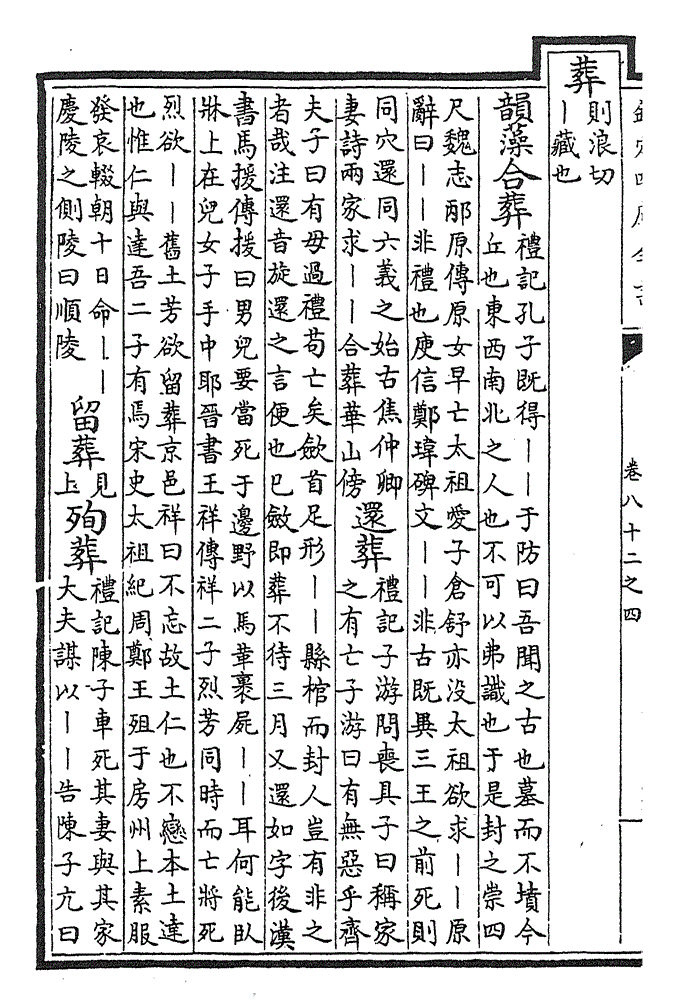 卷八十二之四
葬
則浪切
丨藏也
韻藻合葬
禮記孔子既得丨丨于防曰吾聞之古也墓而不墳今
丘也東西南北之人也不可以弗識也于是封之崇四
尺魏志邴原傳原女早亡太祖愛子倉舒亦没太祖欲求丨丨原
辭曰丨丨非禮也庾信鄭瑋碑文丨丨非古既異三王之前死則
同穴還同六義之始古焦仲卿
妻詩兩家求丨丨合葬華山傍
還葬
禮記子游問喪具子曰稱家
之有亡子游曰有無惡乎齊
夫子曰有毋過禮苟亡矣斂首足形丨丨縣棺而封人豈有非之
者哉注還音旋還之言便也已斂即葬不待三月又還如字後漢
書馬援傳援曰男兒要當死于邊野以馬革裹屍丨丨耳何能臥
牀上在兒女子手中耶晉書王祥傳祥二子烈芳同時而亡將死
烈欲丨丨舊土芳欲留葬京邑祥曰不忘故土仁也不戀本土達
也惟仁與達吾二子有焉宋史太祖紀周鄭王殂于房州上素服
發哀輟朝十日命丨丨
慶陵之側陵曰順陵
留葬
見
上
殉葬
禮記陳子車死其妻與其家
大夫謀以丨丨告陳子亢曰